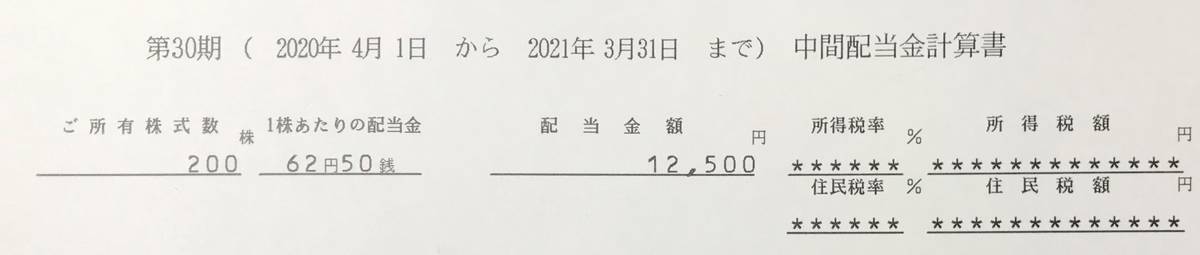 第30期 ( 2020年 4月 1日 から 2021年 3月31日 まで) 中間配当金計算書
ご所有株式数 株 1株あたりの配当金 配当金額 円 所得税率 % 所得税額 円
200 62円50銭 12,500 ****** *************
住民税率 % 住民税額 円
****** *************